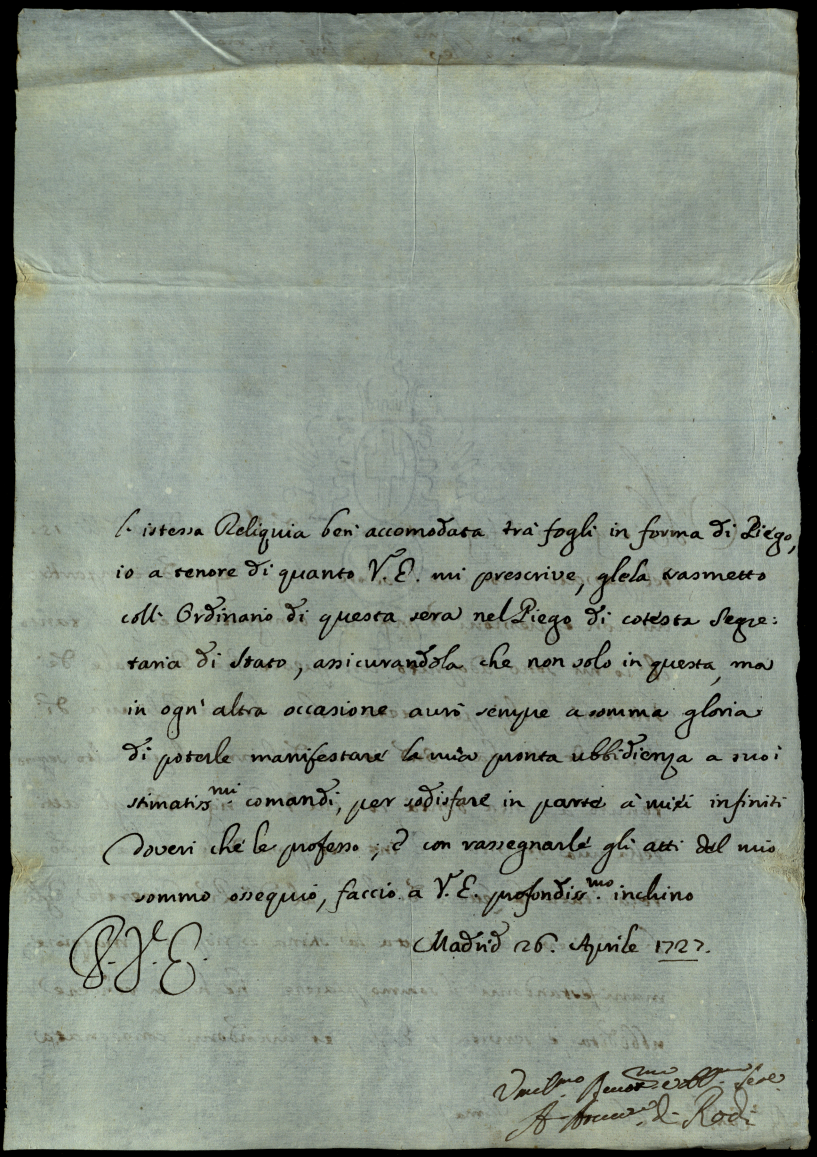 l'istessa Reliquia ben' accomodata trà fogli in forma di Piego,
io a tenore di quanto V. E. mi prescrive, glela trasmetto
coll' Ordinario di questa sera nel Piego di cotesta Segre:
taria di Stato, assicurandola che non solo in questa, ma
in ogn' altra occasione aurò sempre a somma gloria
di poterle manifestare la mia pronta ubbidienza a suoi
stimatiss.mi comandi, per sodisfare in parte à miei infiniti
doveri che le professo; è con rassegnarle gli atti del mio
sommo ossequio, faccio a V. E. profondiss.mo inchino
Madrid 26. Aprile 1727.
S. V. E.
Umil.mo Devot.mo
A. di Rodi